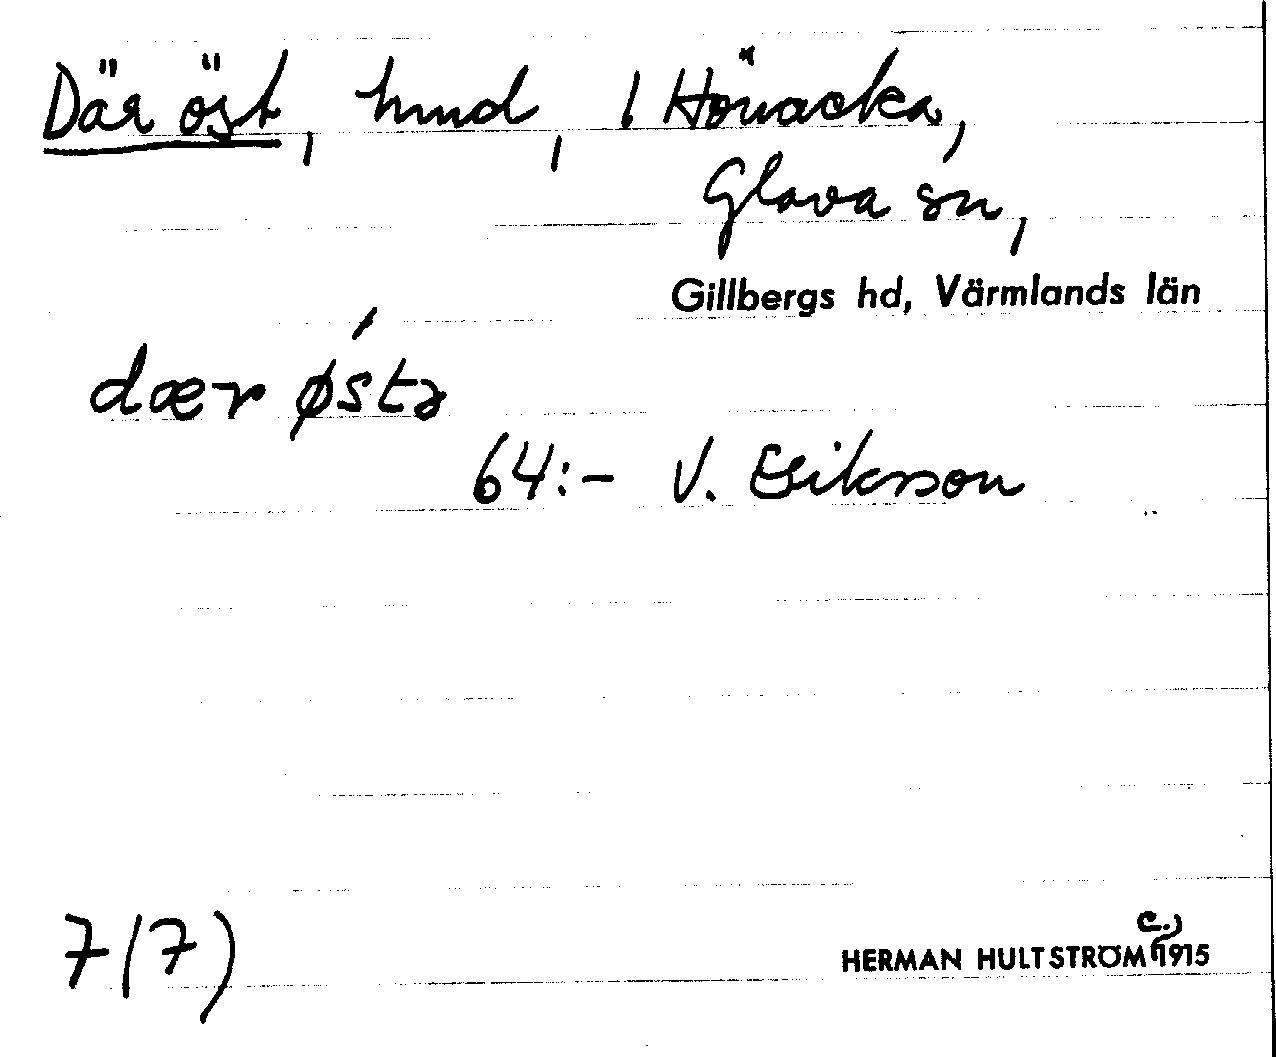 Där öst, hmd, 1 Hönacka,
Glava sn,
Gillbergs hd, Värmlands län
dær østa
64:- V. Eriksson
7(7)
c.)
HERMAN HULTSTRÖM 1915